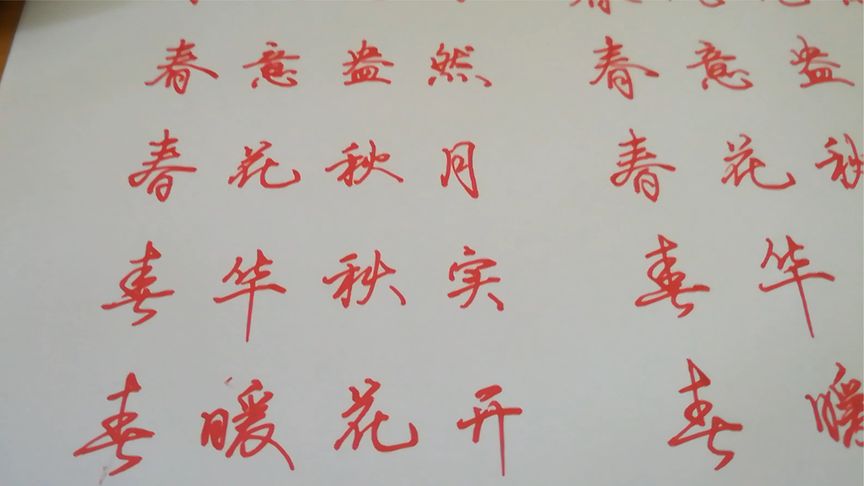 春意盎然 春意盎
春花秋月 春花秋
春华秋实 春华
春暖花开 春暖